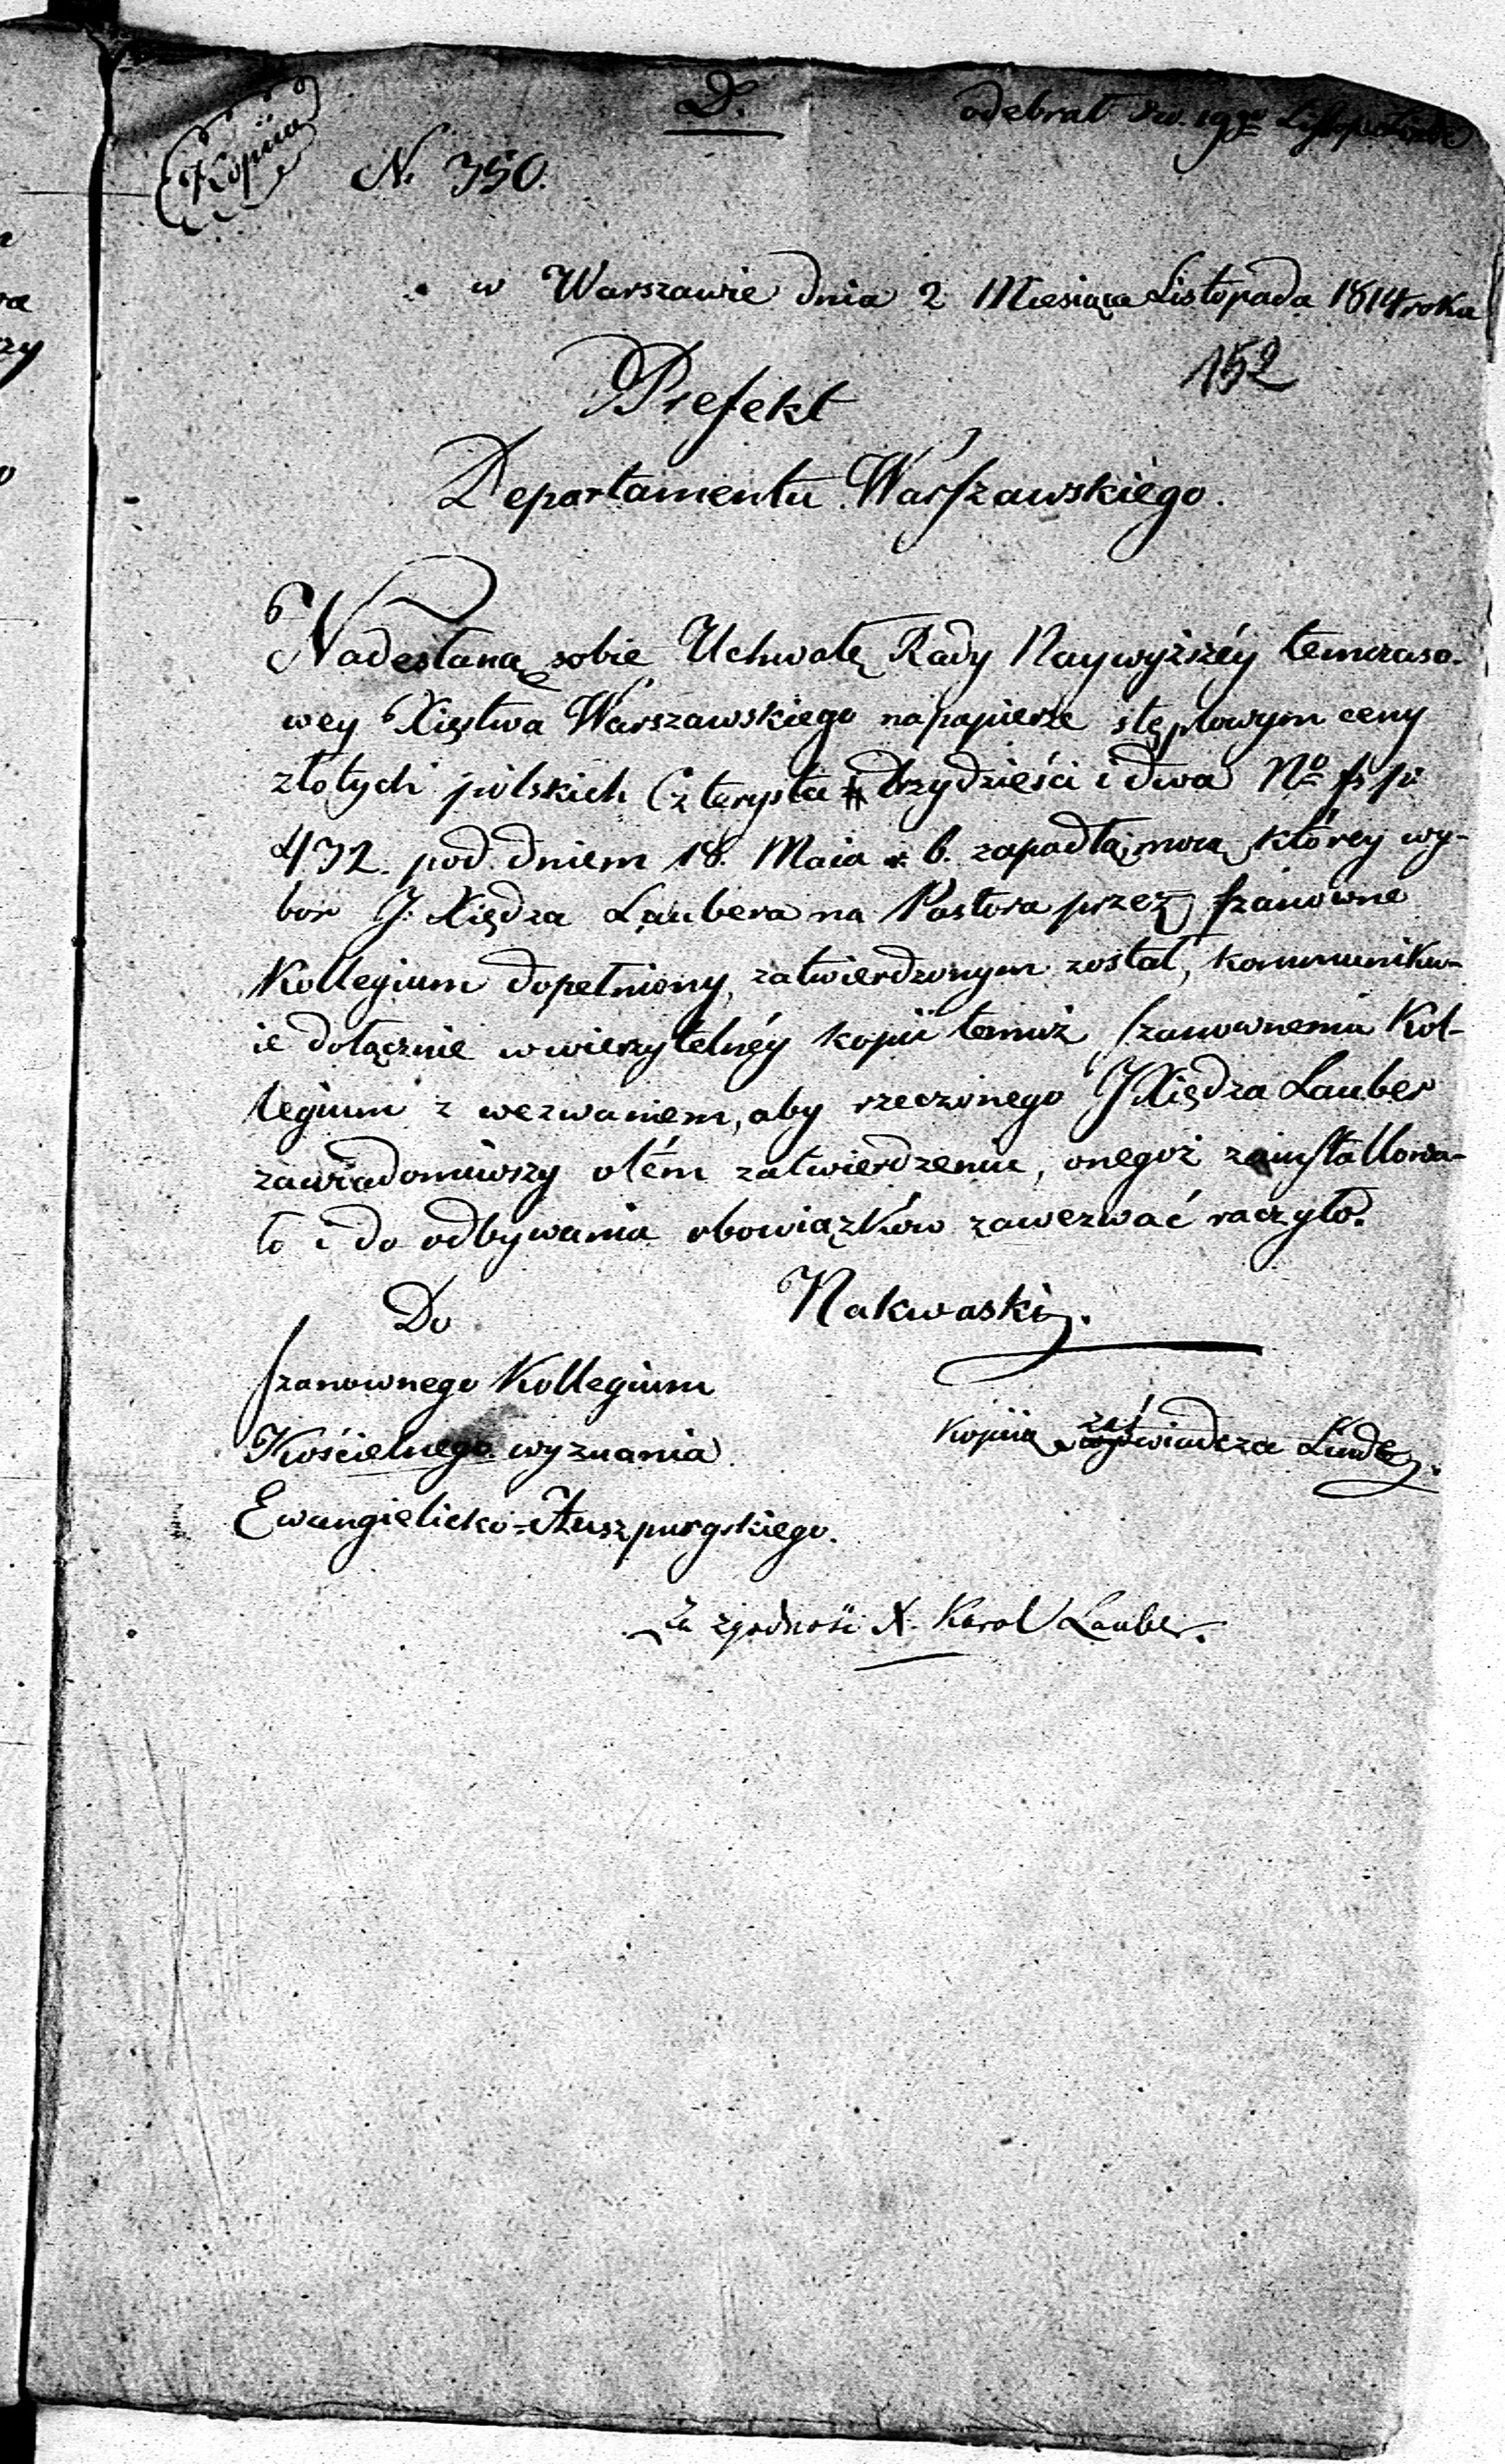 D.
odebrał 19go Listopada
Kopiia
N. 350.
w Warszawie dnia 2 Miesiąca Listopada 1814 roku
152
Prefekt
Departamentu Warszawskiego.
Nadesłaną sobie Uchwałę Rady Naywyższéy temczaso-
wey Xięstwa Warszawskiego na papierze stęplowym ceny
złotych polskich Czterysta trzydzieści i dwa No
432. pod dniem 18. Maia r. b. zapadłą, mocą którey wy-
bor J. Xiędza Laubera na Pastora przez szanowne
Kollegium dopełniony, zatwierdzonym został, kommuniku-
ie dołącznie w wierzytelnéy kopii temuż szanownemu Kol-
legium z wezwaniem, aby rzeczonego JXiędza Lauber
zawiadomiwszy otém zatwierdzeniu, onegoż zainstallowa-
ło i do odbywania obowiązków zawezwać raczyło.
Do
Nakwaski.
szanownego Kollegium
Kościelnego wyznania
kopiią zaświadcza Linde.
Ewangielicko-Auszpurgskiego.
Za zgodność X. Karol Lauber.